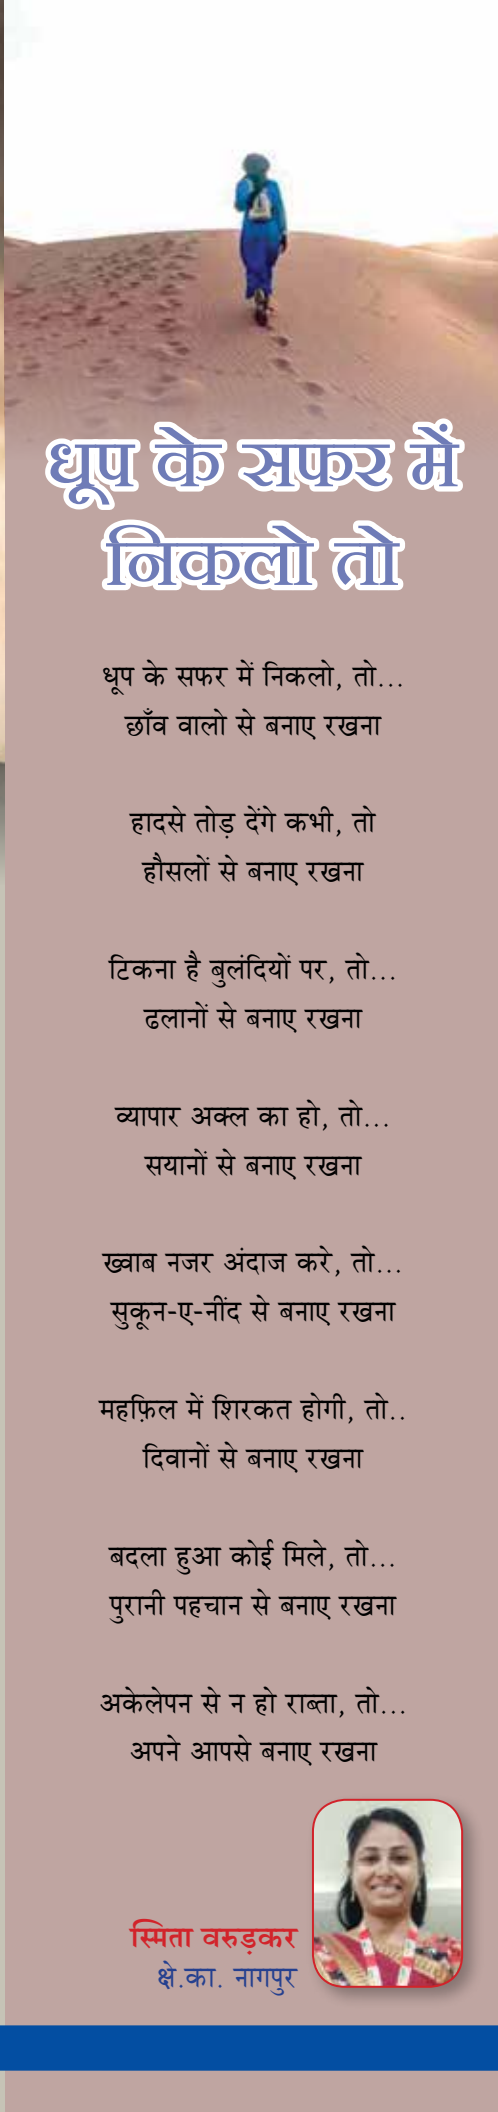 धूप के सफर में
निकलो तो
धूप के सफर में निकलो, तो...
छाँव वालो से बनाए रखना
हादसे तोड़ देंगे कभी, तो
हौसलों से बनाए रखना
टिकना है बुलंदियों पर, तो...
ढलानों से बनाए रखना
व्यापार अक्ल का हो, तो...
सयानों से बनाए रखना
ख्वाब नजर अंदाज करे, तो...
सुकून-ए-नींद से बनाए रखना
महफ़िल में शिरकत होगी, तो..
दिवानों से बनाए रखना
बदला हुआ कोई मिले, तो...
पुरानी पहचान से बनाए रखना
अकेलेपन से न हो राब्ता, तो...
अपने आपसे बनाए रखना
स्मिता वरुड़कर
क्षे.का. नागपुर